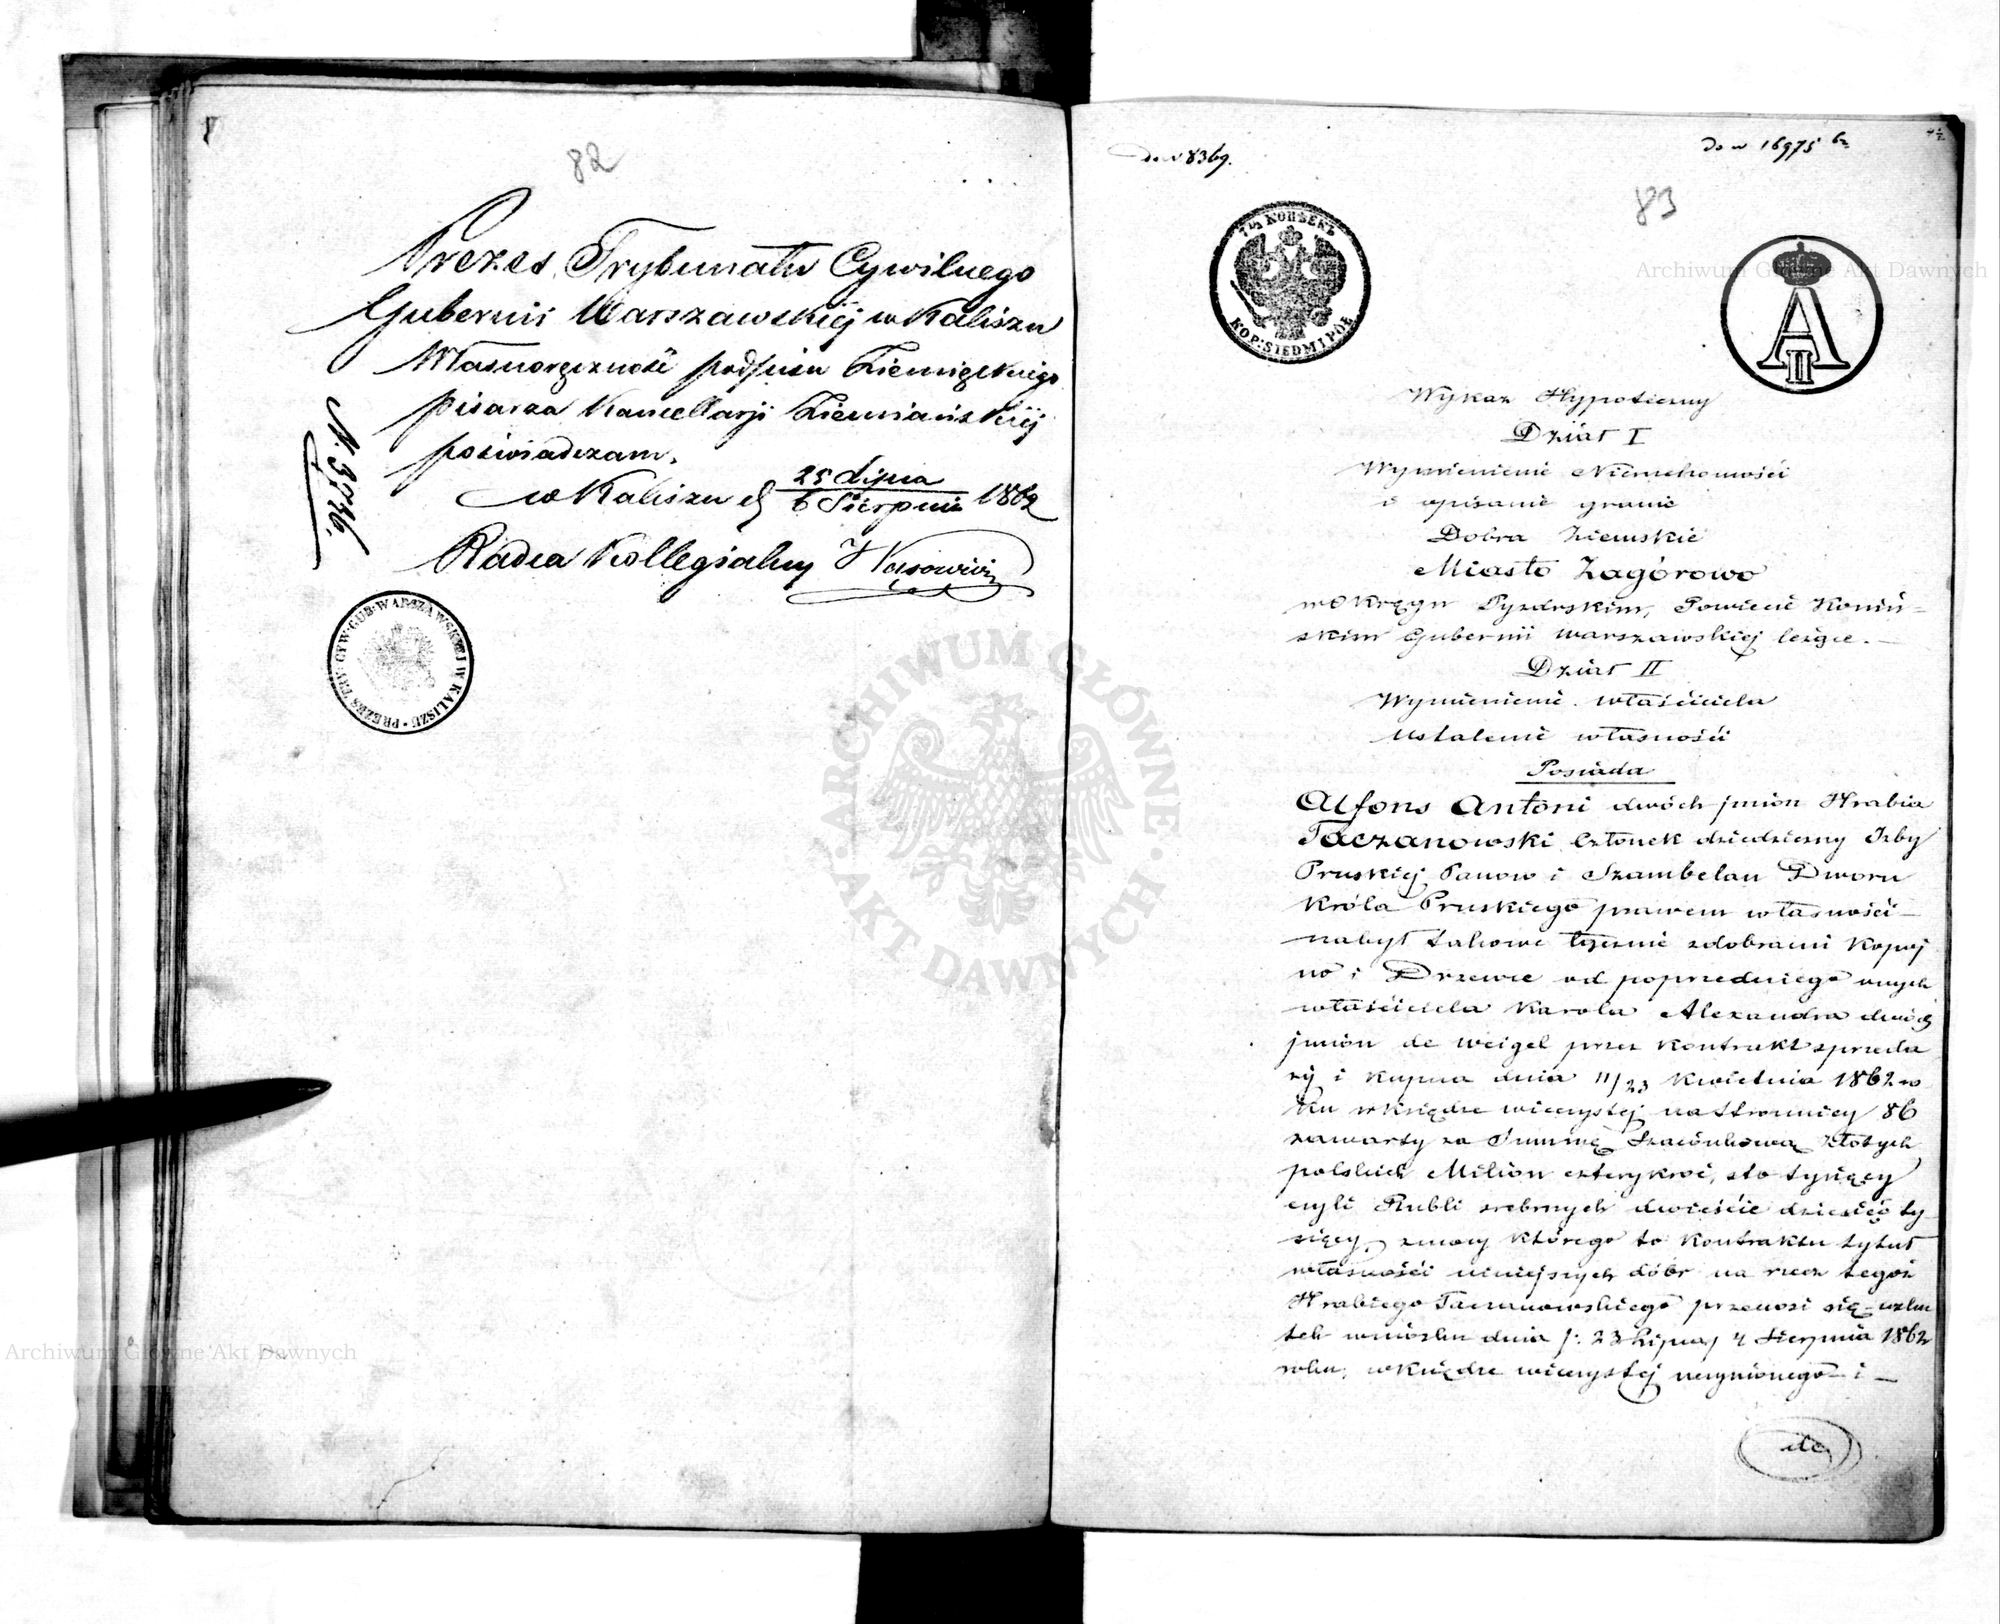 82
Prezes Trybunału Cywilnego
Gubernii Warszawskiej w Kaliszu
Własnoręczność podpisu
pisarza Kancellarji Ziemiańskiej
poświadczam.
w Kaliszu d 25 Lipca / 6 Sierpnia 1862
Radca Kollegialny
N. 3746.
PREZES TRY: CYW: GUB: WARSZAWSKIEJ W KALISZU
do N 8369.
do N 16975
83
7½ КОПѢЕКЪ
KOP: SIEDM I PÓŁ
A II
Wykaz Hypoteczny
Dział I
Wymienienie Nieruchomości
i opisanie granic
Dobra Ziemskie
Miasto Zagórowo
w Okręgu Pyzdrskim, Powiecie Koniń-
skim Gubernii warszawskiej leżące. —
Dział II
Wymienienie właściciela
Ustalenie własności
Posiada
Alfons Antoni dwóch jmion Hrabia
Taczanowski Członek dziedziczny Izby
Pruskiej Panow i Szambelan Dworu
Króla Pruskiego prawem własności —
nabył takowe łącznie z dobrami Kopoj
no i Drzewce od poprzedniego onych
właściciela Karola Alexandra dwóch
jmion de Weigel przez Kontrakt sprzeda
ży i kupna dnia 11/23 Kwietnia 1862 ro
ku w księdze wieczystej na stronnicy 86
zawarty za Summę Szacunkową złotych
polskich Milion czterykroć, sto tysięcy
czyli Rubli srebrnych dwieście dziesięć ty
sięcy, z mocy którego to Kontraktu tytuł
własności niniejszych dóbr na rzecz tegoż
Hrabiego Taczanowskiego przenosi się w sku
tek wniosku dnia /: 23 Lipca / 4 Sierpnia 1862
roku, w księdze wieczystej uczynionego i —
Archiwum Główne Akt Dawnych
ARCHIWUM GŁÓWNE · AKT DAWNYCH ·
Archiwum Główne Akt Dawnych